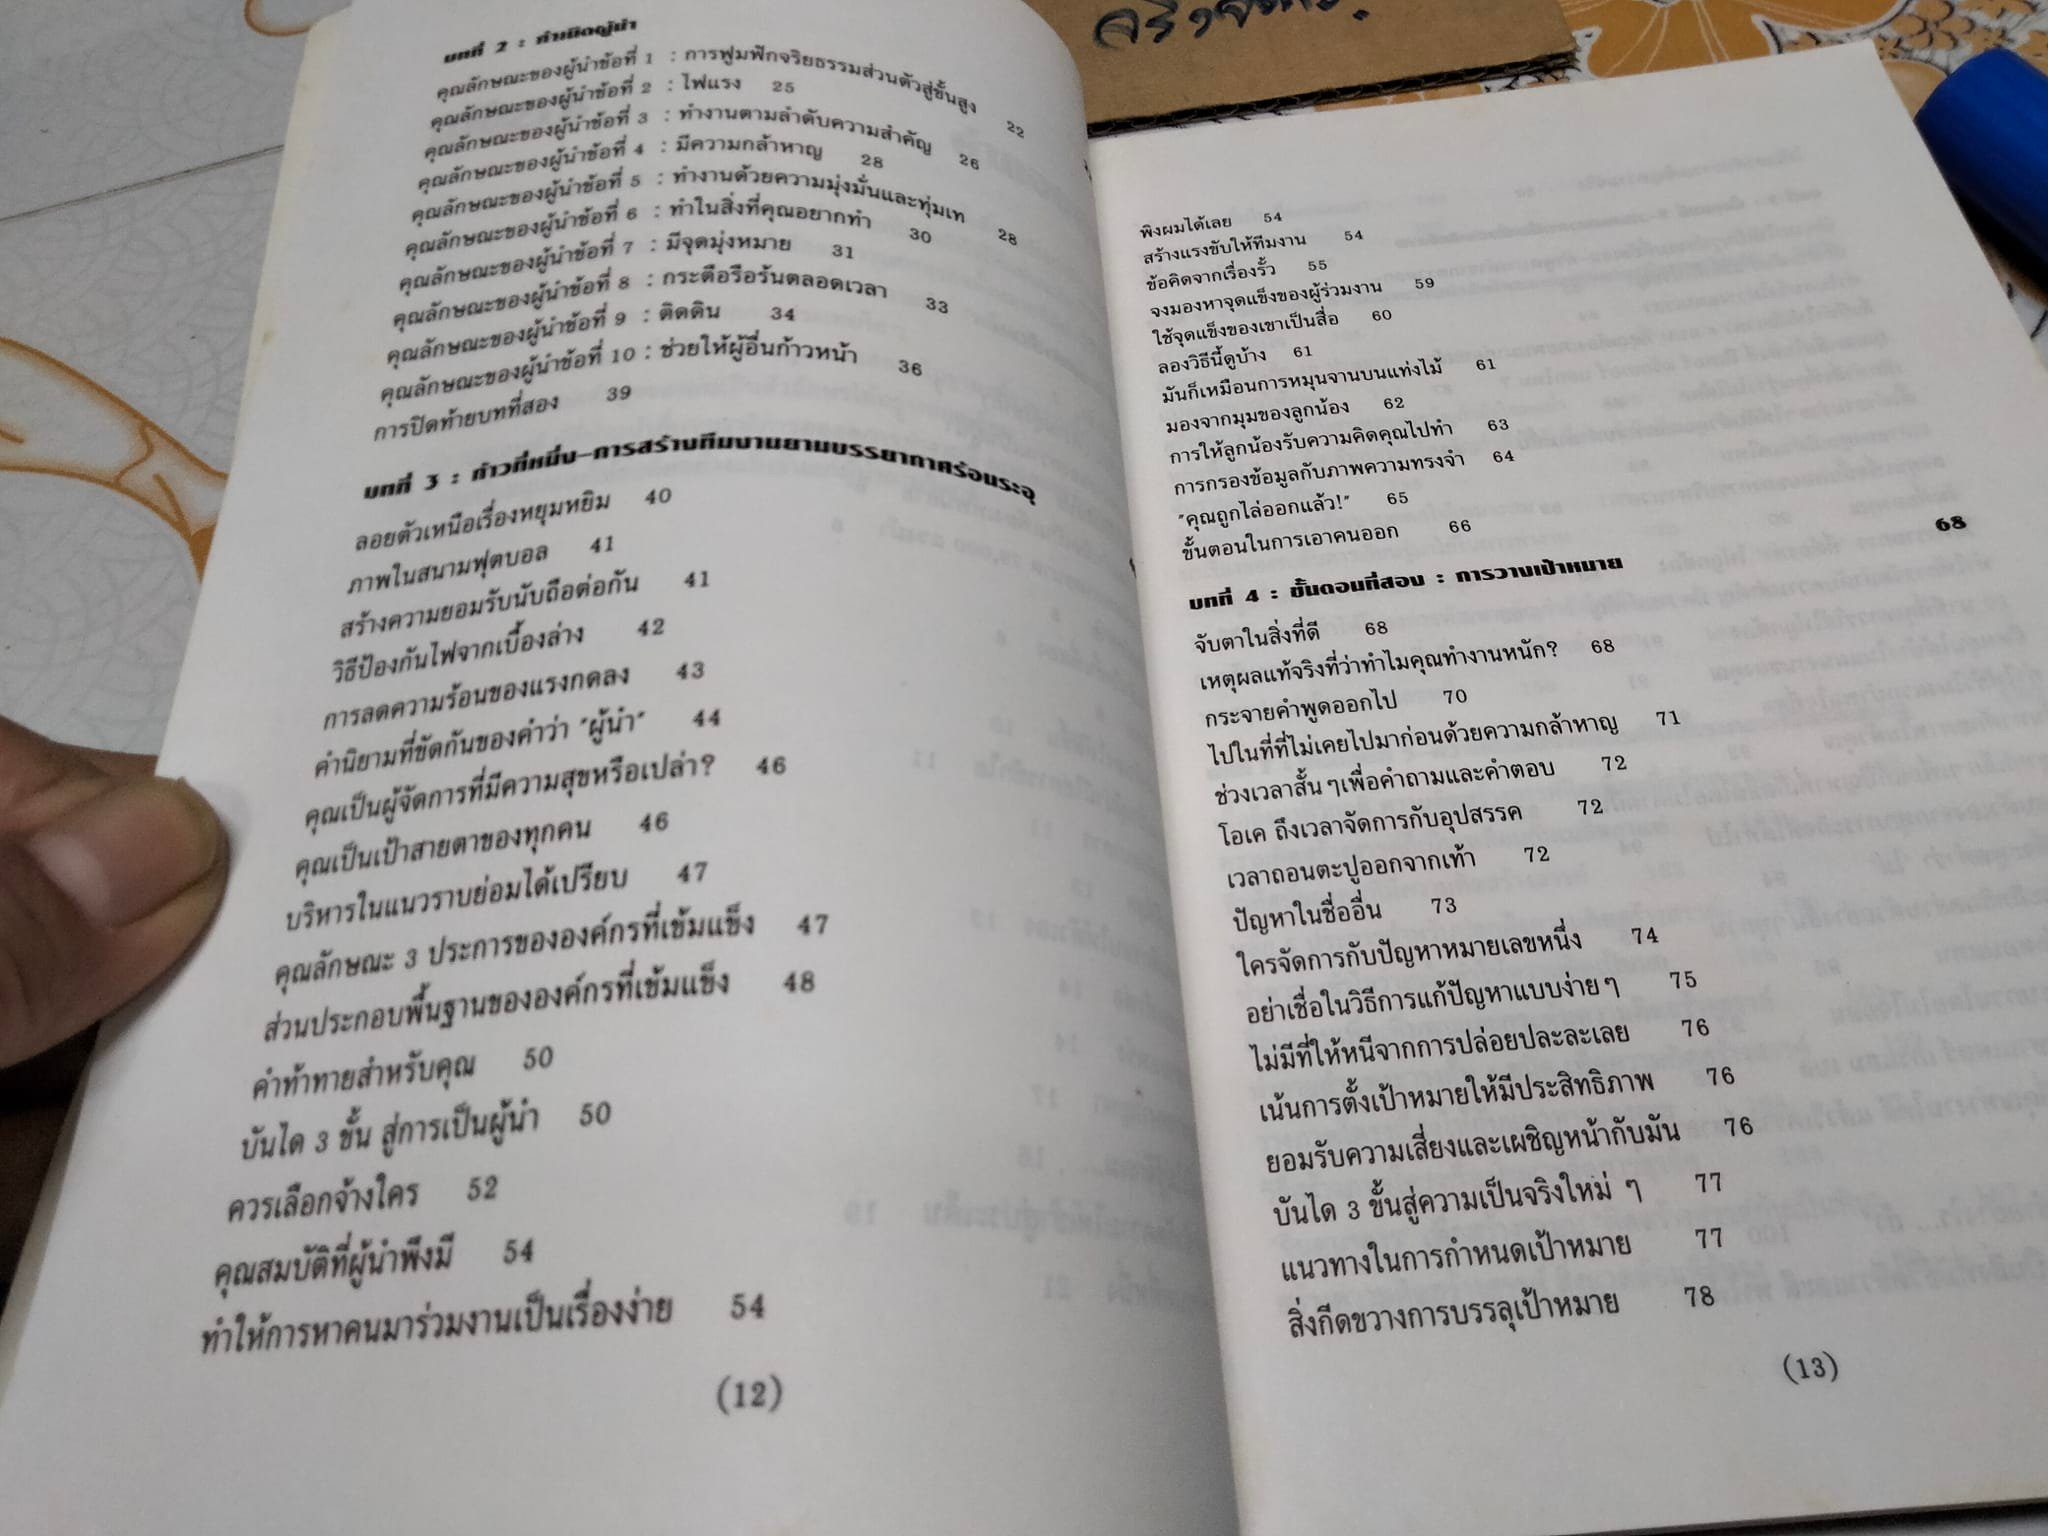 บทที่ 2 : กำเนิดผู้นำ
คุณลักษณะของผู้นำข้อที่ 1 : การฟูมฟักจริยธรรมส่วนตัวสู่ขั้นสูง 22
คุณลักษณะของผู้นำข้อที่ 2 : ไฟแรง 25
คุณลักษณะของผู้นำข้อที่ 3 : ทำงานตามลำดับความสำคัญ 26
คุณลักษณะของผู้นำข้อที่ 4 : มีความกล้าหาญ 28
คุณลักษณะของผู้นำข้อที่ 5 : ทำงานด้วยความมุ่งมั่นและทุ่มเท 28
คุณลักษณะของผู้นำข้อที่ 6 : ทำในสิ่งที่คุณอยากทำ 30
คุณลักษณะของผู้นำข้อที่ 7 : มีจุดมุ่งหมาย 31
คุณลักษณะของผู้นำข้อที่ 8 : กระตือรือร้นตลอดเวลา 33
คุณลักษณะของผู้นำข้อที่ 9 : ติดดิน 34
คุณลักษณะของผู้นำข้อที่ 10 : ช่วยให้ผู้อื่นก้าวหน้า 36
การปิดท้ายบทที่สอง 39
บทที่ 3 : ก้าวที่หนึ่ง–การสร้างทีมงานยามบรรยากาศร้อนระอุ
ลอยตัวเหนือเรื่องหยุมหยิม 40
ภาพในสนามฟุตบอล 41
สร้างความยอมรับนับถือต่อกัน 41
วิธีป้องกันไฟจากเบื้องล่าง 42
การลดความร้อนของแรงกดลง 43
คำนิยามที่ขัดกันของคำว่า "ผู้นำ" 44
คุณเป็นผู้จัดการที่มีความสุขหรือเปล่า? 46
คุณเป็นเป้าสายตาของทุกคน 46
บริหารในแนวราบย่อมได้เปรียบ 47
คุณลักษณะ 3 ประการขององค์กรที่เข้มแข็ง 47
ส่วนประกอบพื้นฐานขององค์กรที่เข้มแข็ง 48
คำท้าทายสำหรับคุณ 50
บันได 3 ขั้น สู่การเป็นผู้นำ 50
ควรเลือกจ้างใคร 52
คุณสมบัติที่ผู้นำพึงมี 54
ทำให้การหาคนมาร่วมงานเป็นเรื่องง่าย 54
(12)
พิงผมได้เลย 54
สร้างแรงขับให้ทีมงาน 54
ข้อคิดจากเรื่องรั้ว 55
จงมองหาจุดแข็งของผู้ร่วมงาน 59
ใช้จุดแข็งของเขาเป็นสื่อ 60
ลองวิธีนี้ดูบ้าง 61
มันก็เหมือนการหมุนจานบนแท่งไม้ 61
มองจากมุมของลูกน้อง 62
การให้ลูกน้องรับความคิดคุณไปทำ 63
การกรองข้อมูลกับภาพความทรงจำ 64
"คุณถูกไล่ออกแล้ว!" 65
ขั้นตอนในการเอาคนออก 66
บทที่ 4 : ขั้นตอนที่สอง : การวางเป้าหมาย 68
จับตาในสิ่งที่ดี 68
เหตุผลแท้จริงที่ว่าทำไมคุณทำงานหนัก? 68
กระจายคำพูดออกไป 70
ไปในที่ที่ไม่เคยไปมาก่อนด้วยความกล้าหาญ 71
ช่วงเวลาสั้น ๆเพื่อคำถามและคำตอบ 72
โอเค ถึงเวลาจัดการกับอุปสรรค 72
เวลาถอนตะปูออกจากเท้า 72
ปัญหาในชื่ออื่น 73
ใครจัดการกับปัญหาหมายเลขหนึ่ง 74
อย่าเชื่อในวิธีการแก้ปัญหาแบบง่าย ๆ 75
ไม่มีที่ให้หนีจากการปล่อยปละละเลย 76
เน้นการตั้งเป้าหมายให้มีประสิทธิภาพ 76
ยอมรับความเสี่ยงและเผชิญหน้ากับมัน 76
บันได 3 ขั้นสู่ความเป็นจริงใหม่ ๆ 77
แนวทางในการกำหนดเป้าหมาย 77
สิ่งกีดขวางการบรรลุเป้าหมาย 78
(13)